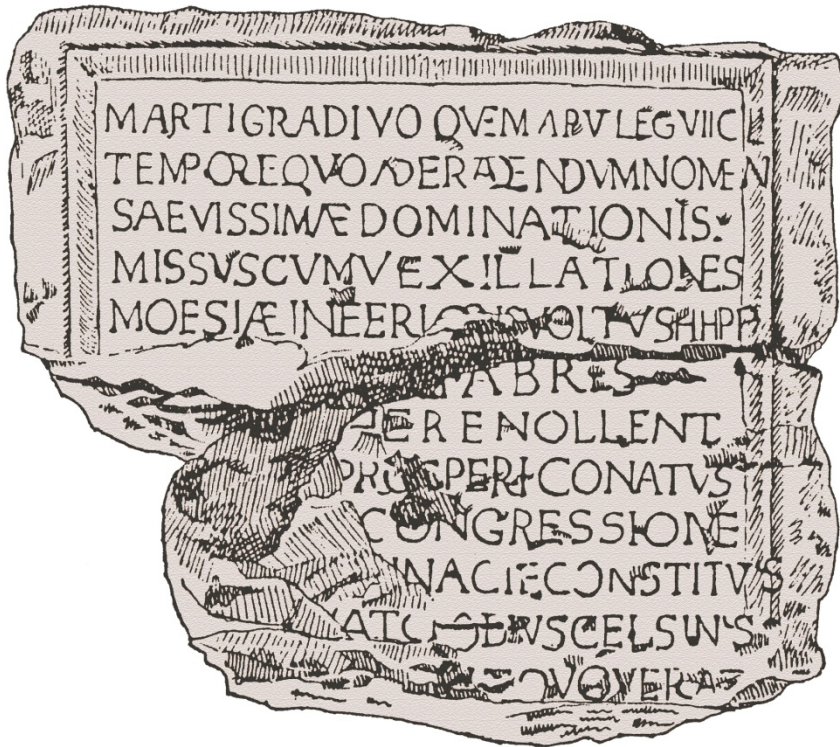 MARTI GRADIVO QVEM APV LEG VII C
TEMPORE QVO AD ERADENDVM NOMEN
SAEVISSIMÆ DOMINATIONIS
MISSVS CVM VEXILLATIONES
MOESIÆ INFERI VOLTVS HHPP
FABRES
ERE NOLLENT
PROSPERI CONATVS
CONGRESSIONE
IN ACIE CONSTITVS
CELSINVS
VOVERAT